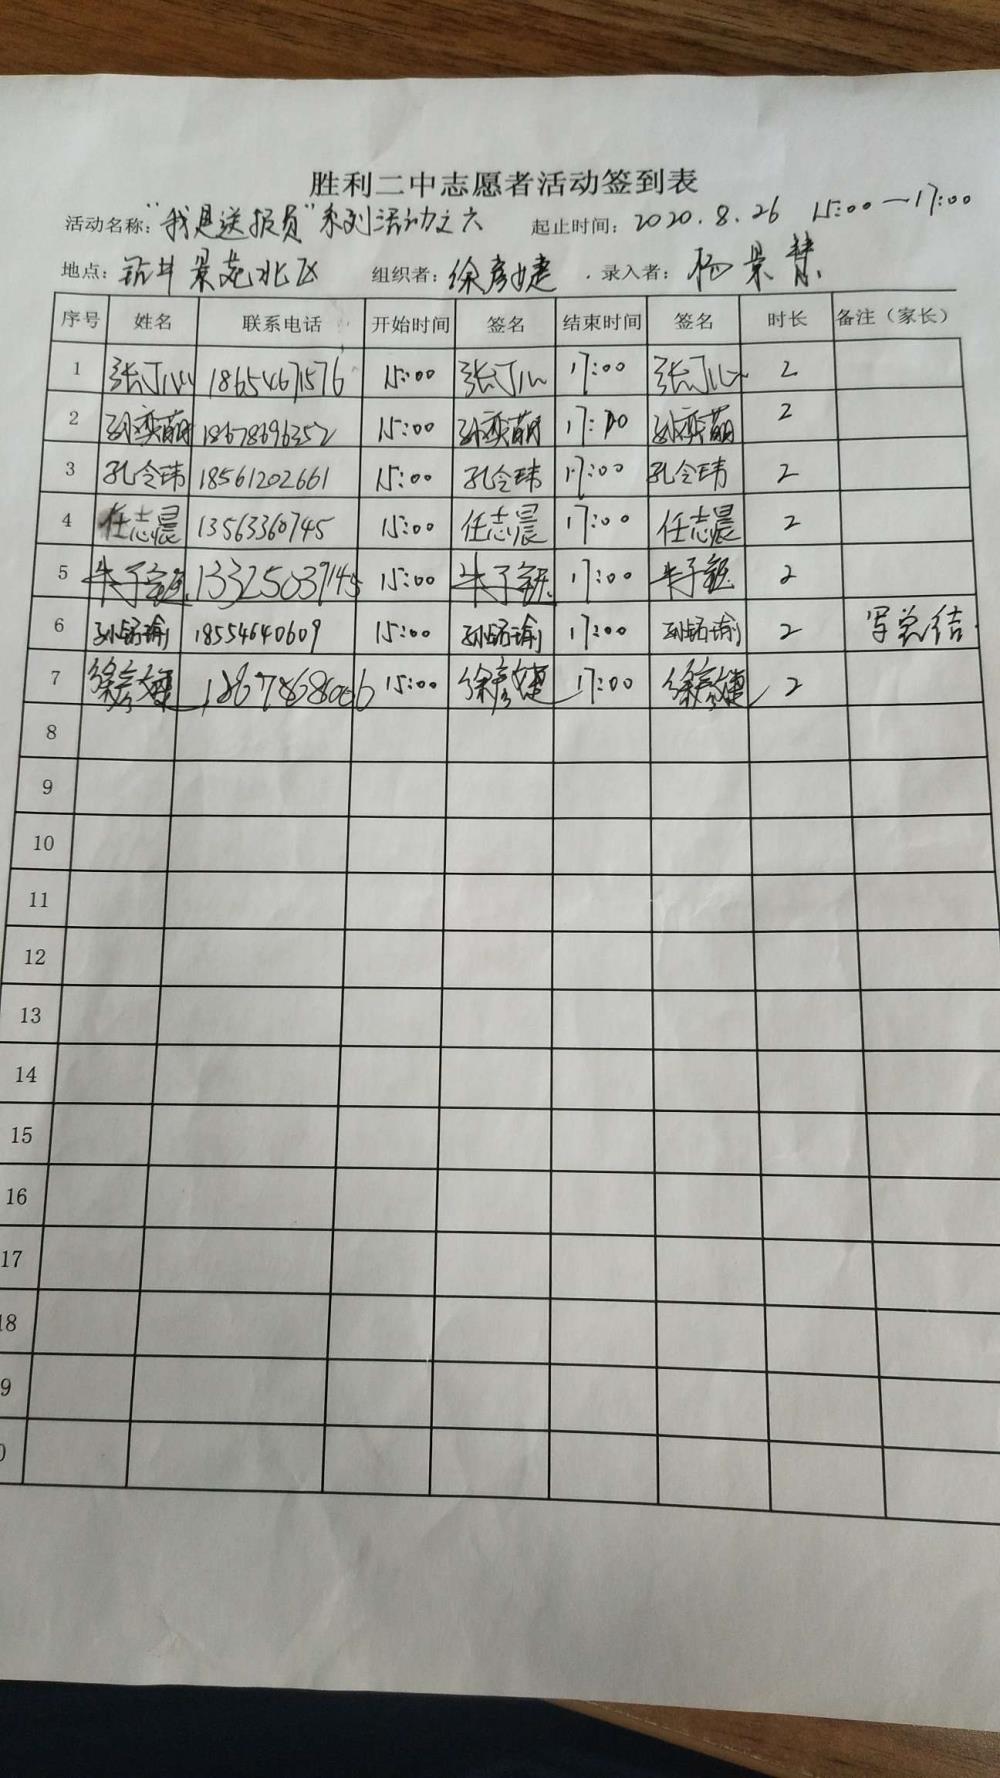 胜利二中志愿者活动签到表
活动名称:“我是送报员”系列活动之六 起止时间:2020.8.26 15:00—17:00
地点:钻井景苑北区 组织者:徐彦婕 录入者:杨景慧
序号 姓名 联系电话 开始时间 签名 结束时间 签名 时长 备注（家长）
1 18654671576 15:00 17:00 2
2 孙奕萌 18678696352 15:00 孙奕萌 17:00 孙奕萌 2
3 孔令玮 18561202661 15:00 孔令玮 17:00 孔令玮 2
4 任志晨 13563360745 15:00 任志晨 17:00 任志晨 2
5 13325039145 15:00 17:00 2
6 18554640609 15:00 17:00 2 写总结
7 徐彦婕 15:00 徐彦婕 17:00 徐彦婕 2
8
9
10
11
12
13
14
15
16
17
18
9
0